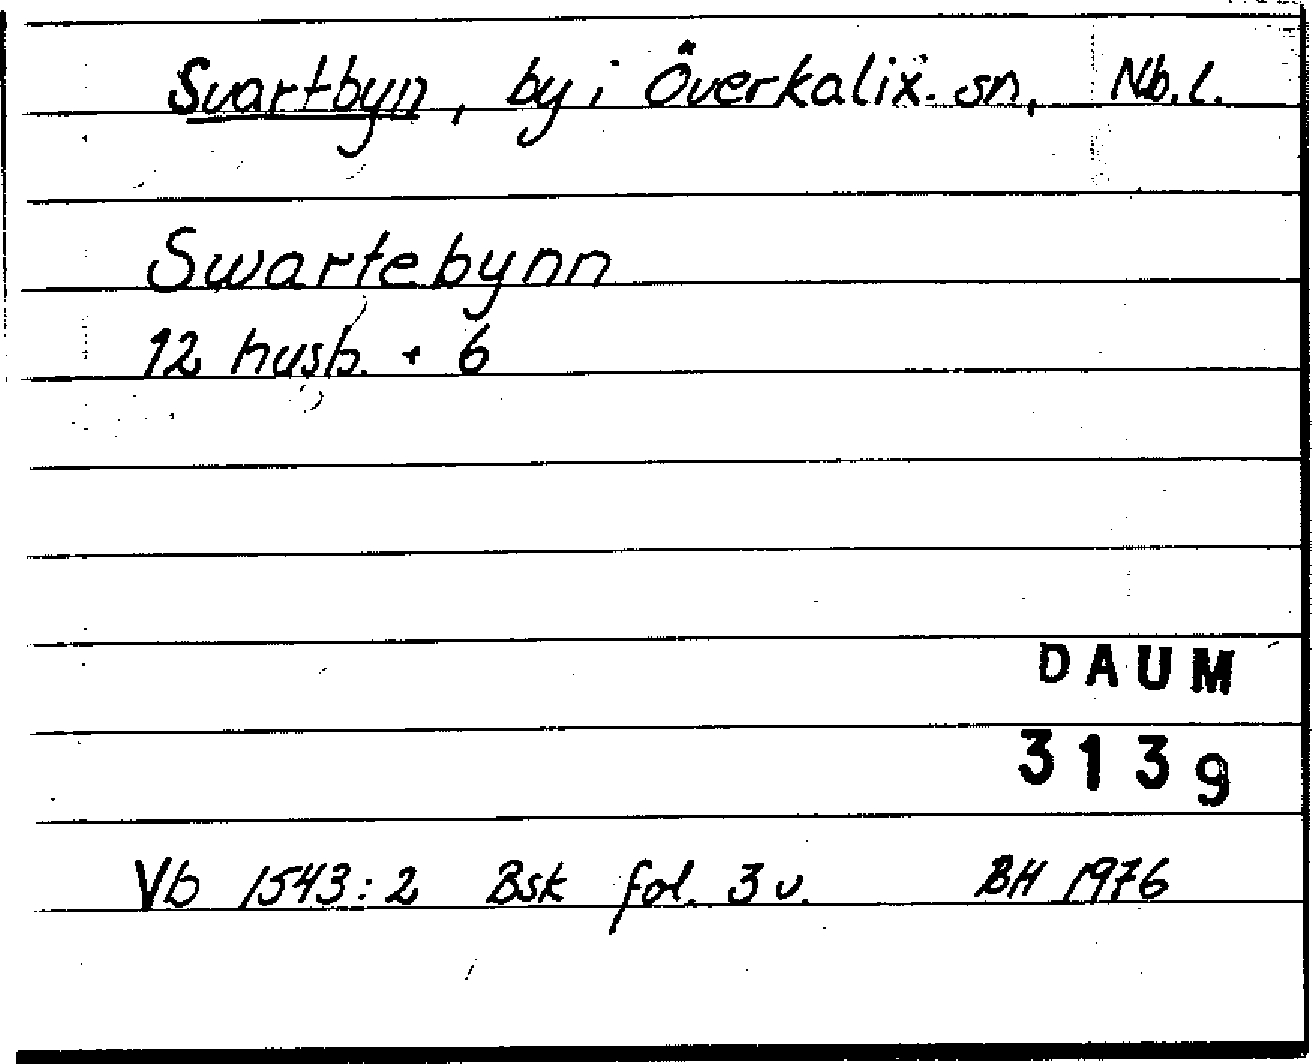 Svartbyn, by i Överkalix. sn, Nb. l.
Swartebynn
12 husb. + 6
DAUM
3139
Vb 1543:2 Bsk fol. 3 v. BH 1976